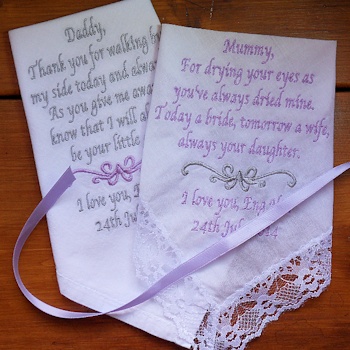 Daddy,
Thank you for walking by
my side today and always
As you give me away
know that I will al
be your little
I love you, E
24th
Mummy,
For drying your eyes as
you've always dried mine.
Today a bride, tomorrow a wife,
always your daughter.
I love you,
24th Jul 14